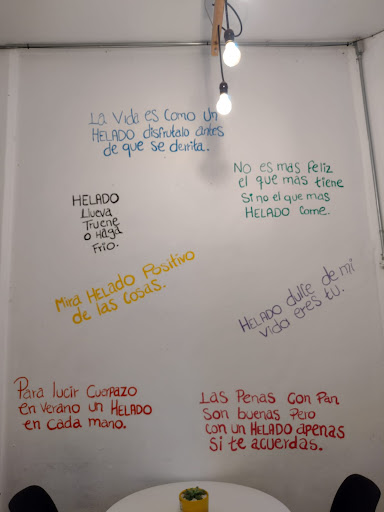 La Vida es Como un
HELADO disfrutalo antes
de que se derrita.
No es mas Feliz
el que mas tiene
Si no el que mas
HELADO Come.
HELADO
Llueva
Truene
o Haga
Frio.
Mira HELADO Positivo
de las cosas.
HELADO dulce de mi
vida eres tu.
Para lucir Cuerpazo
en verano un HELADO
en cada mano.
Las Penas con Pan
Son buenas Pero
con un HELADO apenas
Si te acuerdas.